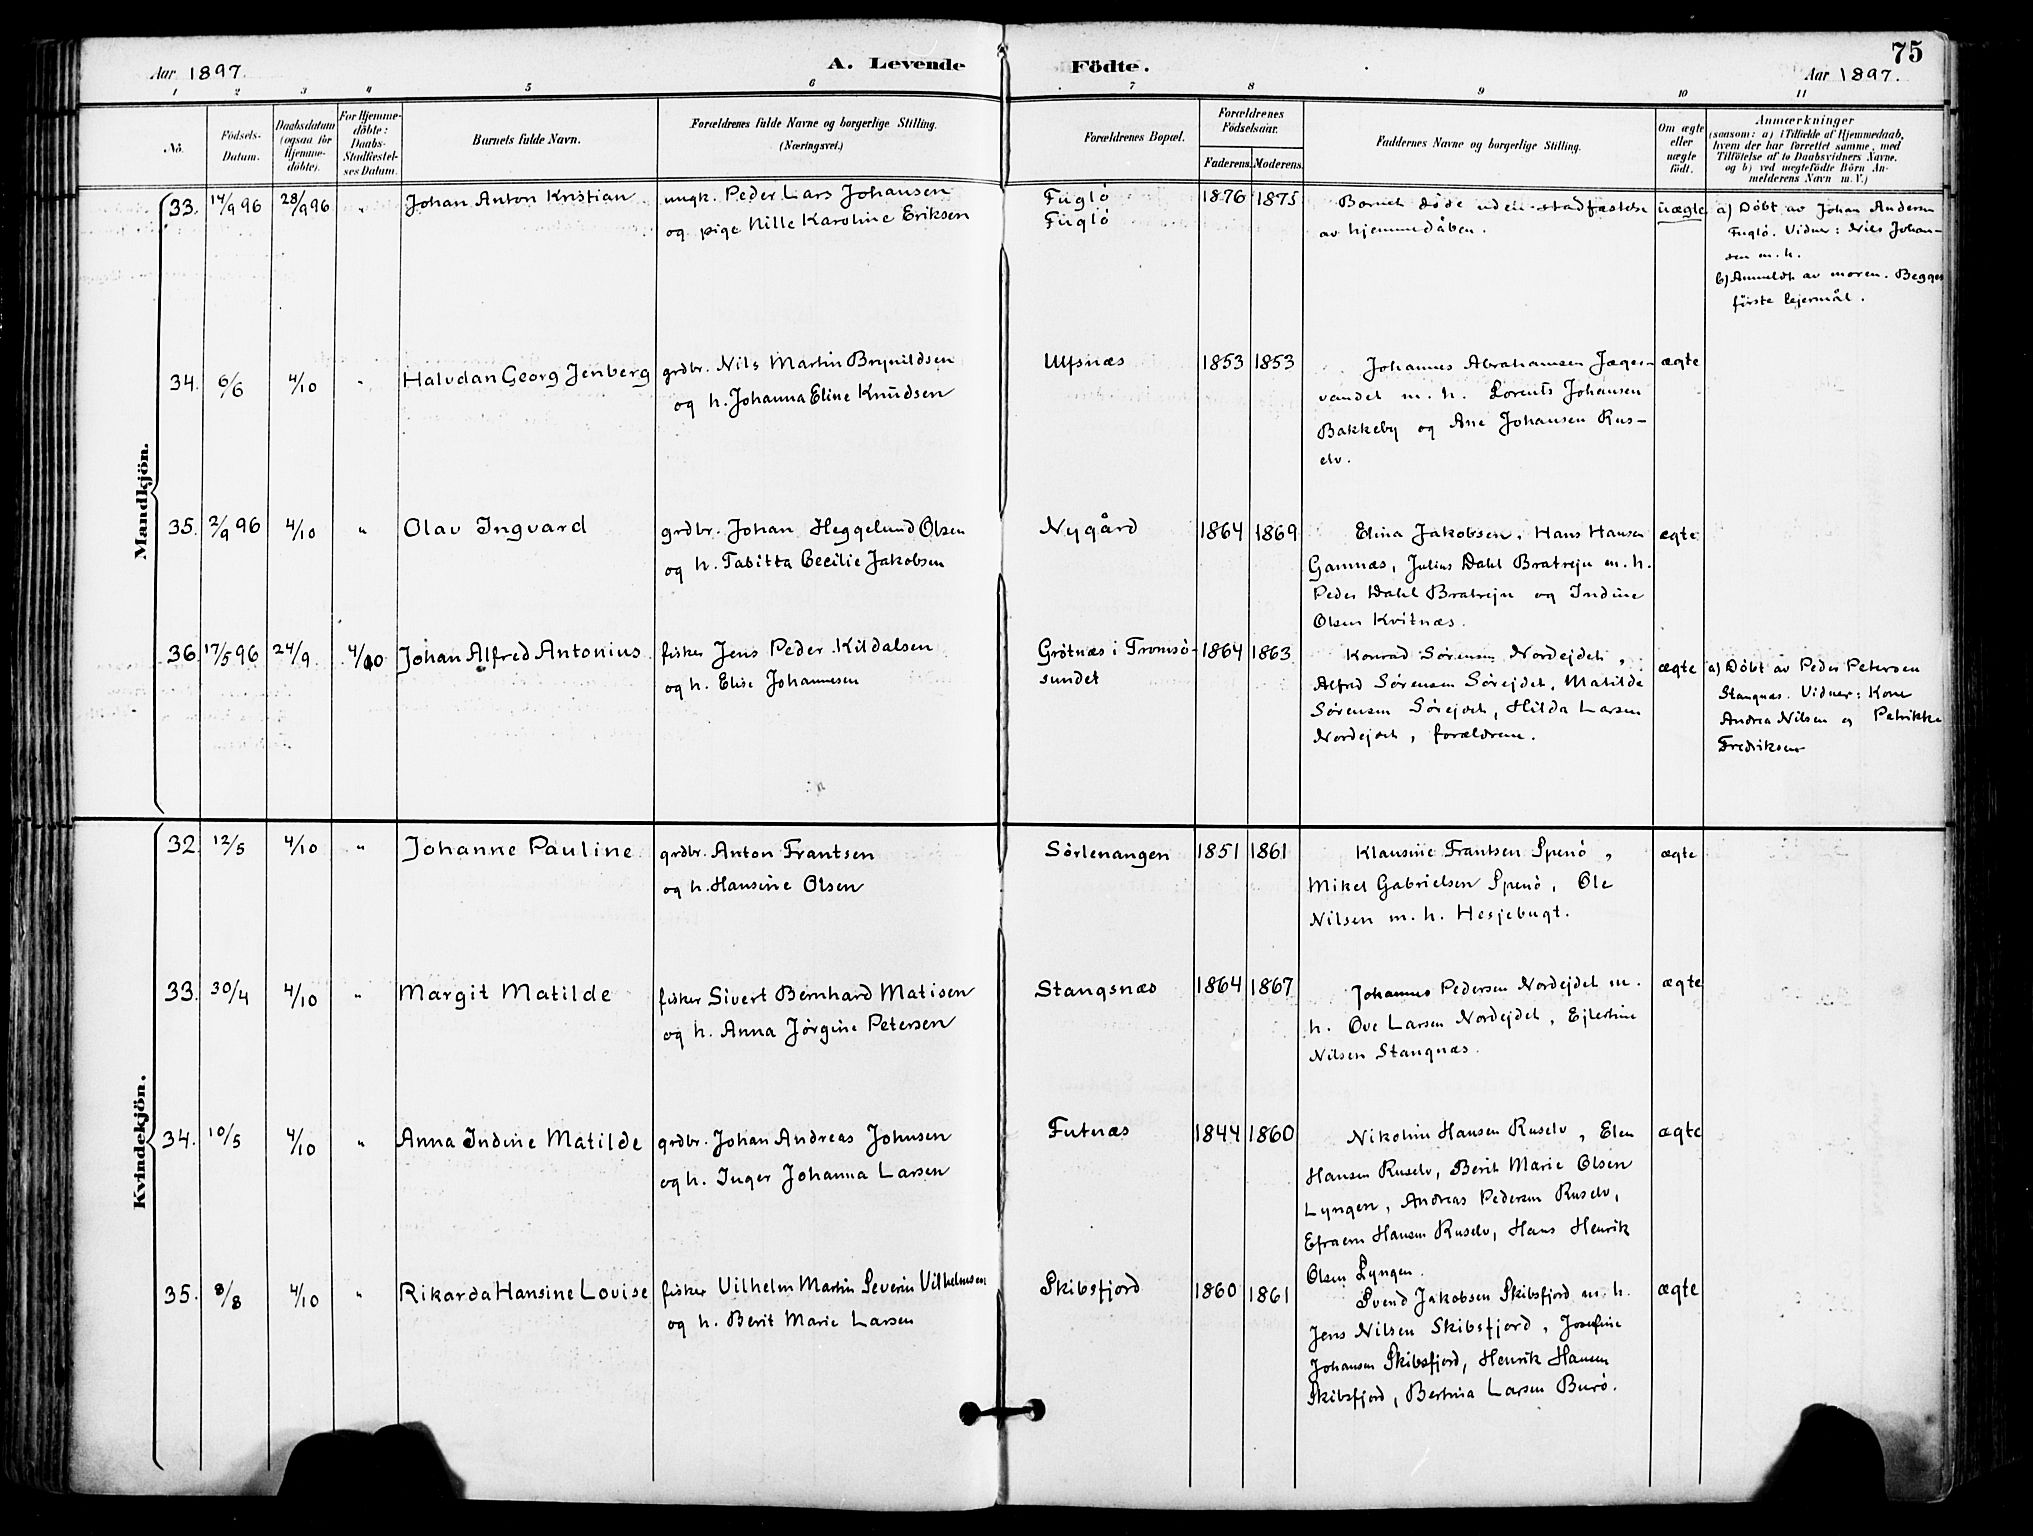 75
Aar 1897.
A. Levende Födte.
Aar 1897.
1 2 3 4 5 6 7 8 9 10 11
No.
Födsels-
Datum.
Daabsdatum
(ogsaa for
Hjemme-
döbte).
For Hjemme-
döbte:
Daabs-
Stadfæstel-
ses Datum.
Barnets fulde Navn.
Forældrenes fulde Navne og borgerlige Stilling.
(Næringsvei.)
Forældrenes Bopæl.
Forældrenes
Födselsaar.
Faderens. Moderens.
Faddernes Navne og borgerlige Stilling.
Om ægte
eller
uægte
födt.
Anmærkninger
(saasom: a) i Tilfælde af Hjemmedaab,
hvem der har forrettet samme, med
Tilföielse af to Daabsvidners Navne.
og b) ved uægtefödte Börn An-
melderens Navn m. V.)
Mandkjön.
33. 14/9 96 28/9 96 " Johan Anton Kristian
ungk. Peder Lars Johansen
og pige Nille Karoline Eriksen
Fuglö
Fuglö
1876 1875
Barnet døde uden stadfæstelse
av hjemmedåben.
uægte
a) Döbt av Johan Andersen
Fuglö. Vidner: Nils Johan-
sen m. h.
b) Anmeldt av moren. Begges
förste lejermål.
34. 6/6 4/10 " Halvdan Georg Jenberg
grdbr. Nils Martin Brynildsen
og h. Johanna Eline Knudsen
Ulfsnæs
1853 1853
Johannes Abrahamsen Jæger-
vandet m. h. Lorents Johansen
Bakkeby og Ane Johansen Rus-
elv.
ægte
35. 2/9 96 4/10 " Olav Ingvard
grdbr. Johan Heggelund Olsen
og h. Tabitta Cecilie Jakobsen
Nygård
1864 1869
Elina Jakobsen, Hans Hansen
Gamnæs, Julius Dahl Bratrejn m. h.
Peder Dahl Bratrejn og Indine
Olsen Kvitnæs.
ægte
36. 17/5 96 24/9. 4/10 Johan Alfred Antonius
fisker Jens Peder Kildalsen
og h. Elise Johannesen
Grötnæs i Tromsö-
sundet
1864 1863
Konrad Sørensen Nordejdet,
Alfred Sørensen Sørejdet, Matilde
Sørensen Sørejdet, Hilda Larsen
Nordejdet, forældrene.
ægte
a) Döbt av Peder Petersen
Stangnæs. Vidner: Kone
Andrea Nilsen og Petrikke
Fredriksen
Kvindekjön.
32. 12/5 4/10 " Johanne Pauline
grdbr. Anton Frantsen
og h. Hansine Olsen
Sörlenangen
1851 1861
Klausine Frantsen Spenö,
Mikel Gabrielsen Spenö, Ole
Nilsen m. h. Hesjebugt.
ægte
33. 30/4 4/10 " Margit Matilde
fisker Sivert Bernhard Matisen
og h. Anna Jörgine Petersen
Stangsnæs
1864 1867
Johannes Pedersen Nordejdet m.
h. Ove Larsen Nordejdet, Ejlertine
Nilsen Stangnæs.
ægte
34. 10/5 4/10 " Anna Indine Matilde
grdbr. Johan Andreas Johnsen
og h. Inger Johanna Larsen
Futnæs
1844 1860
Nikoline Hansen Ruselv, Elen
Hansen Ruselv, Berit Marie Olsen
Lyngen, Andreas Pedersen Ruselv,
Efraem Hansen Ruselv, Hans Henrik
Olsen Lyngen.
ægte
35. 8/8 4/10 " Rikarda Hansine Lovise
fisker Vilhelm Martin Severin Vilhelmsen
og h. Berit Marie Larsen
Skibsfjord
1860 1861
Svend Jakobsen Skibsfjord m. h.
Jens Nilsen Skibsfjord, Josefine
Johansen Skibsfjord, Henrik Hansen
Skibsfjord, Bertina Larsen Burö.
ægte